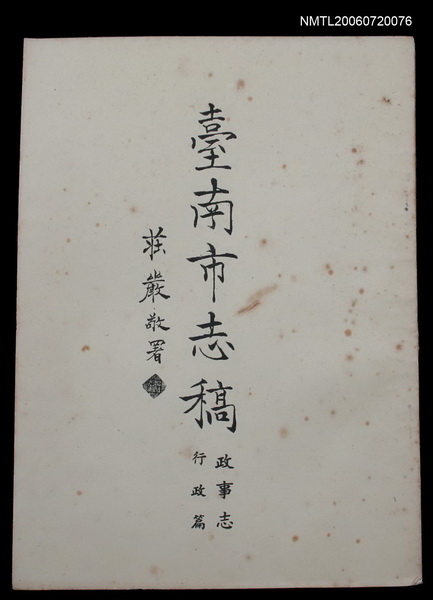 NMTL20060720076
臺南市志稿
政事志
行政篇
莊嚴敬署